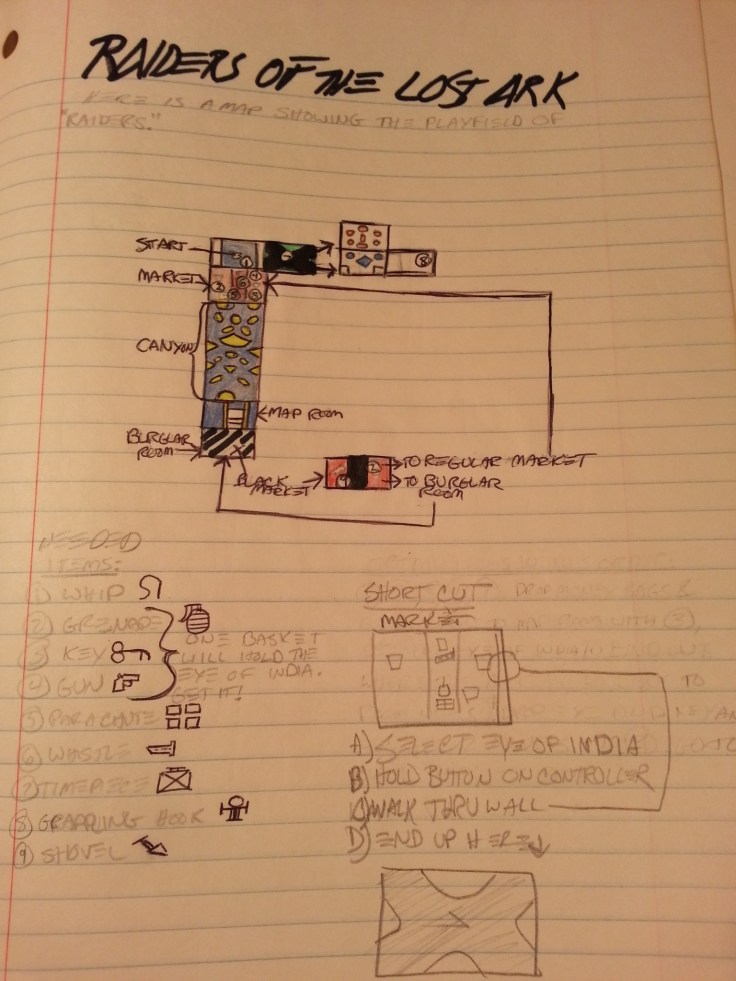 RAIDERS OF THE LOST ARK
HERE IS A MAP SHOWING THE PLAYFIELD OF
"RAIDERS."
START
1
MARKET
8
CANYON
MAP ROOM
BURGLAR
ROOM
BLACK
MARKET
TO REGULAR MARKET
TO BURGLAR
ROOM
NEEDED
ITEMS:
① WHIP
② GRENADE
③ KEY
④ GUN
ONE BASKET
WILL HOLD THE
EYE OF INDIA.
GET IT!
⑤ PARACHUTE
⑥ WHISTLE
⑦ TIMEPIECE
⑧ GRAPPLING HOOK
⑨ SHOVEL
SHORT CUT
MARKET
A) SELECT EYE OF INDIA
B) HOLD BUTTON ON CONTROLLER
C) WALK THRU WALL
D) END UP HERE